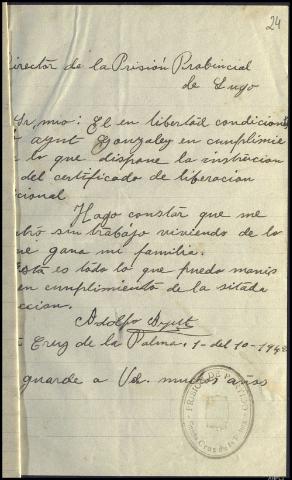 24
irector de la Prisión Probincial
de Lugo
Sr, mio: El en libertad condicion
Ayut Gonzalez en cumplimie
lo que dispone la instrucion
del certificado de liberacion
icional
Hago constar que me
tró sin trabajo viviendo de lo
ue gana mi familia.
Esta es todo lo que puedo manis
en cumplimiento de la sitada
ccion.
Adolfo Ayut
Cruz de la Palma, 1 - del 10 - 194
guarde a Vd. muchos años
PRISION DE PARTIDO
Santa Cruz de la Palma